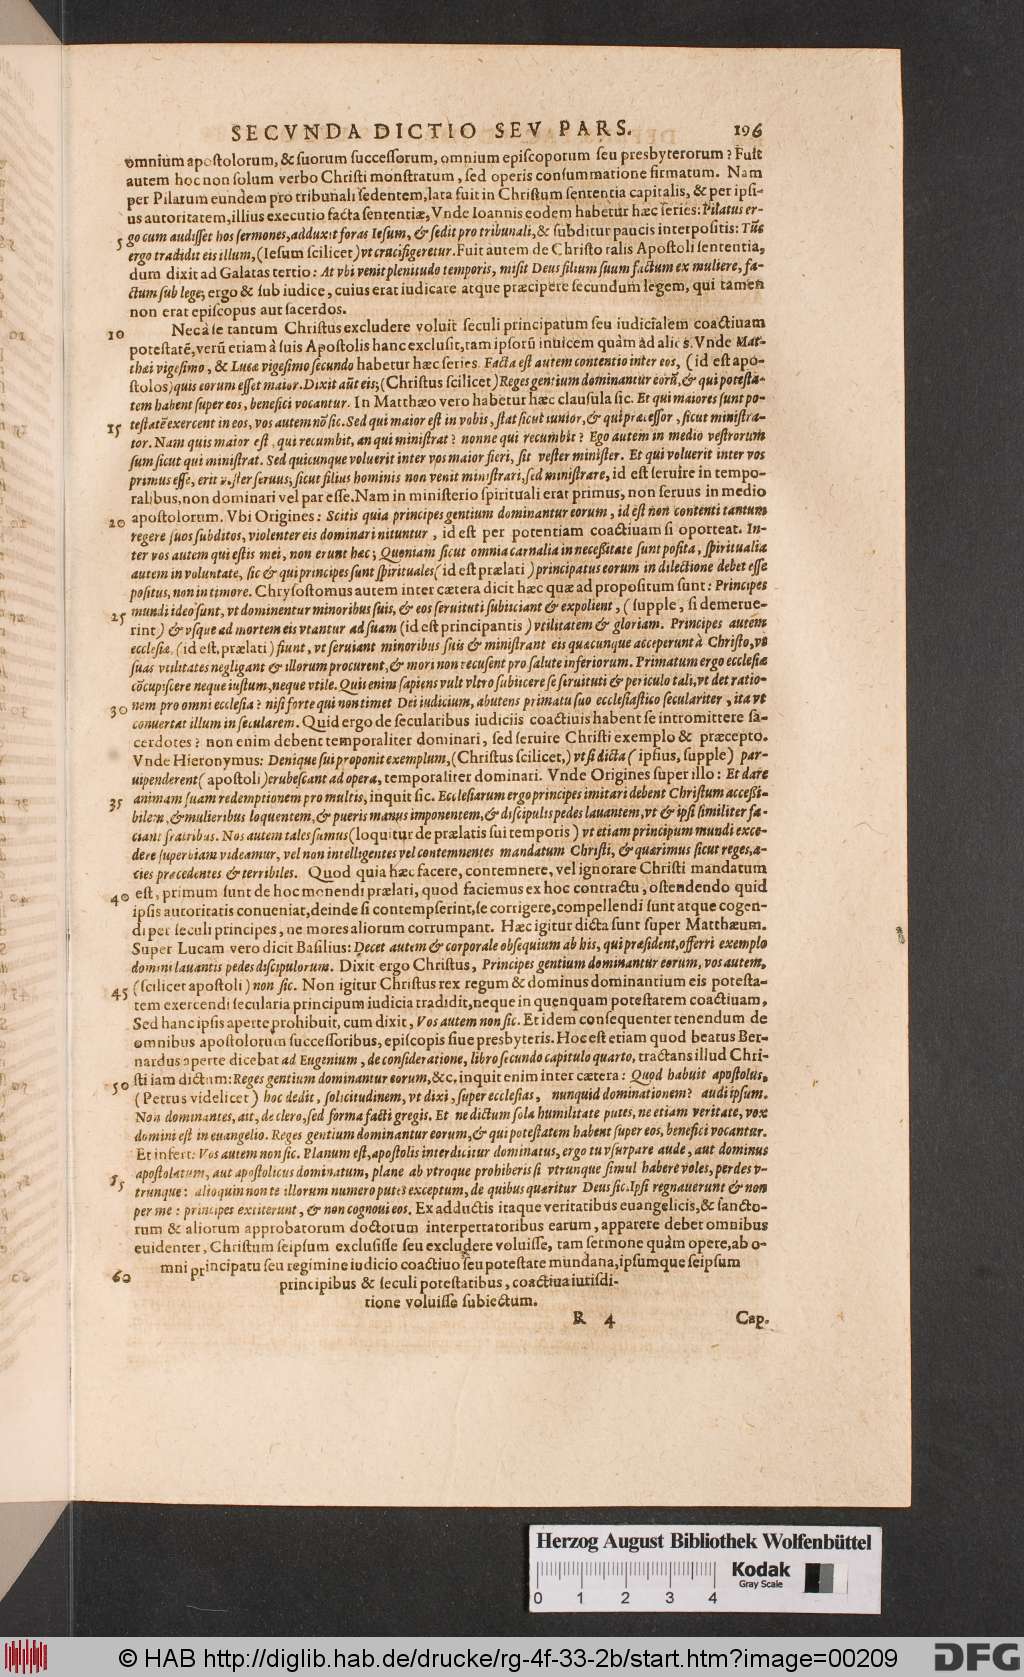 SECVNDA DICTIO SEV PARS. 196
omnium apostolorum, & suorum successorum, omnium episcoporum seu presbyterorum? Fuit
autem hoc non solum verbo Christi monstratum, sed operis consummatione firmatum. Nam
per Pilatum eundem pro tribunali sedentem, lata fuit in Christum sententia capitalis, & per ipsi-
us autoritatem, illius executio facta sententiæ, Vnde Ioannis eodem habetur hæc series: Pilatus er-
5 go cum audisset hos sermones, adduxit foras Iesum, & sedit pro tribunali, & subditur paucis interpositis: Tūc
ergo tradidit eis illum, (Iesum scilicet) vt crucifigeretur. Fuit autem de Christo talis Apostoli sententia,
dum dixit ad Galatas tertio: At vbi venit plenitudo temporis, misit Deus filium suum factum ex muliere, fa-
ctum sub lege; ergo & sub iudice, cuius erat iudicare atque præcipere secundum legem, qui tamen
non erat episcopus aut sacerdos.
10 Nec à se tantum Christus excludere voluit seculi principatum seu iudicialem coactiuam
potestatē, verū etiam à suis Apostolis hanc exclusit, tam ipsorū inuicem quàm ad alios. Vnde Mat-
thæi vigesimo, & Lucæ vigesimo secundo habetur hæc series. Facta est autem contentio inter eos, (id est apo-
stolos) quis eorum esset maior. Dixit aūt eis, (Christus scilicet) Reges gentium dominantur eorū, & qui potestā-
tem habent super eos, benefici vocantur. In Matthæo vero habetur hæc clausula sic. Et qui maiores sunt po-
15 testatē exercent in eos, vos autem nō sic. Sed qui maior est in vobis, fiat sicut iunior, & qui præcessor, sicut ministra-
tor. Nam quis maior est, qui recumbit, an qui ministrat? nonne qui recumbit? Ego autem in medio vestrorum
sum sicut qui ministrat. Sed quicunque voluerit inter vos maior fieri, sit vester minister. Et qui voluerit inter vos
primus esse, erit vester seruus; sicut filius hominis non venit ministrari, sed ministrare, id est seruire in tempo-
ralibus, non dominari vel par esse. Nam in ministerio spirituali erat primus, non seruus in medio
20 apostolorum. Vbi Origines: Scitis quia principes gentium dominantur eorum, id est non contenti tantum
regere suos subditos, violenter eis dominari nituntur, id est per potentiam coactiuam si oporteat. In-
ter vos autem qui estis mei, non erunt hæc; Quoniam sicut omnia carnalia in necessitate sunt posita, spiritualia
autem in voluntate, sic & qui principes sunt spirituales (id est prælati) principatus eorum in dilectione debet esse
positus, non in timore. Chrysostomus autem inter cætera dicit hæc quæ ad propositum sunt: Principes
25 mundi ideo sunt, vt dominentur minoribus suis, & eos seruituti subiiciant & expolient, (supple, si demerue-
rint) & vsque ad mortem eis vtantur ad suam (id est principantis) vtilitatem & gloriam. Principes autem
ecclesiæ, (id est, prælati) fiunt, vt seruiant minoribus suis & ministrant eis quæcunque acceperunt à Christo, vt
suas vtilitates negligant & illorum procurent, & mori non recusent pro salute inferiorum. Primatum ergo ecclesiæ
cōcupiscere neque iustum, neque vtile. Quis enim sapiens vult vltro subiicere se seruituti & periculo tali, vt det ratio-
30 nem pro omni ecclesia? nisi forte qui non timet Dei iudicium, abutens primatu suo ecclesiastico seculariter, ita vt
conuertat illum in secularem. Quid ergo de secularibus iudiciis coactiuis habent se intromittere sa-
cerdotes? non enim debent temporaliter dominari, sed seruire Christi exemplo & præcepto.
Vnde Hieronymus: Denique sui proponit exemplum, (Christus scilicet,) vt si dicta (ipsius, supple) par-
uipenderent (apostoli) erubescant ad opera, temporaliter dominari. Vnde Origines super illo: Et dare
35 animam suam redemptionem pro multis, inquit sic. Ecclesiarum ergo principes imitari debent Christum accessi-
bilem, & mulieribus loquentem, & pueris manus imponentem, & discipulis pedes lauantem, vt & ipsi similiter fa-
ciant fratribus. Nos autem tales sumus (loquitur de prælatis sui temporis) vt etiam principum mundi exce-
dere superbiam videamur, vel non intelligentes vel contemnentes mandatum Christi, & quærimus sicut reges, a-
cies præcedentes & terribiles. Quod quia hæc facere, contemnere, vel ignorare Christi mandatum
40 est, primum sunt de hoc monendi prælati, quod faciemus ex hoc contractu, ostendendo quid
ipsis autoritatis conueniat, deinde si contempserint, se corrigere, compellendi sunt atque cogen-
di per seculi principes, ne mores aliorum corrumpant. Hæc igitur dicta sunt super Matthæum.
Super Lucam vero dicit Basilius: Decet autem & corporale obsequium ab his, qui præsident, offerri exemplo
domini lauantis pedes discipulorum. Dixit ergo Christus, Principes gentium dominantur eorum, vos autem,
45 (scilicet apostoli) non sic. Non igitur Christus rex regum & dominus dominantium eis potesta-
tem exercendi secularia principum iudicia tradidit, neque in quenquam potestatem coactiuam,
Sed hanc ipsis aperte prohibuit, cum dixit, Vos autem non sic. Et idem consequenter tenendum de
omnibus apostolorum successoribus, episcopis siue presbyteris. Hoc est etiam quod beatus Ber-
nardus aperte dicebat ad Eugenium, de consideratione, libro secundo capitulo quarto, tractans illud Chri-
50 sti iam dictum: Reges gentium dominantur eorum, &c, inquit enim inter cætera: Quod habuit apostolus,
(Petrus videlicet) hoc dedit, solicitudinem, vt dixi, super ecclesias, nunquid dominationem? audi ipsum.
Non dominantes, ait, de clero, sed forma facti gregis. Et ne dictum sola humilitate putes, ne etiam veritate, vox
domini est in euangelio. Reges gentium dominantur eorum, & qui potestatem habent super eos, benefici vocantur.
Et infert: Vos autem non sic. Planum est, apostolis interdicitur dominatus, ergo tu vsurpare aude, aut dominus
55 apostolatum, aut apostolicus dominatum, plane ab vtroque prohiberis si vtrunque simul habere voles, perdes v-
trunque: alioquin non te illorum numero putes exceptum, de quibus quæritur Deus sic. Ipsi regnauerunt & non
per me: principes extiterunt, & non cognoui eos. Ex adductis itaque veritatibus euangelicis, & sancto-
rum & aliorum approbatorum doctorum interpretatoribus earum, apparere debet omnibus
euidenter, Christum seipsum exclusisse seu excludere voluisse, tam sermone quàm opere, ab o-
mni principatu seu regimine iudicio coactiuo seu potestate mundana, ipsumque seipsum
60 principibus & seculi potestatibus, coactiua iurisdi-
ctione voluisse subiectum.
R 4 Cap.
Herzog August Bibliothek Wolfenbüttel
0 1 2 3 4
Kodak
Gray Scale
© HAB http://diglib.hab.de/drucke/rg-4f-33-2b/start.htm?image=00209
DFG